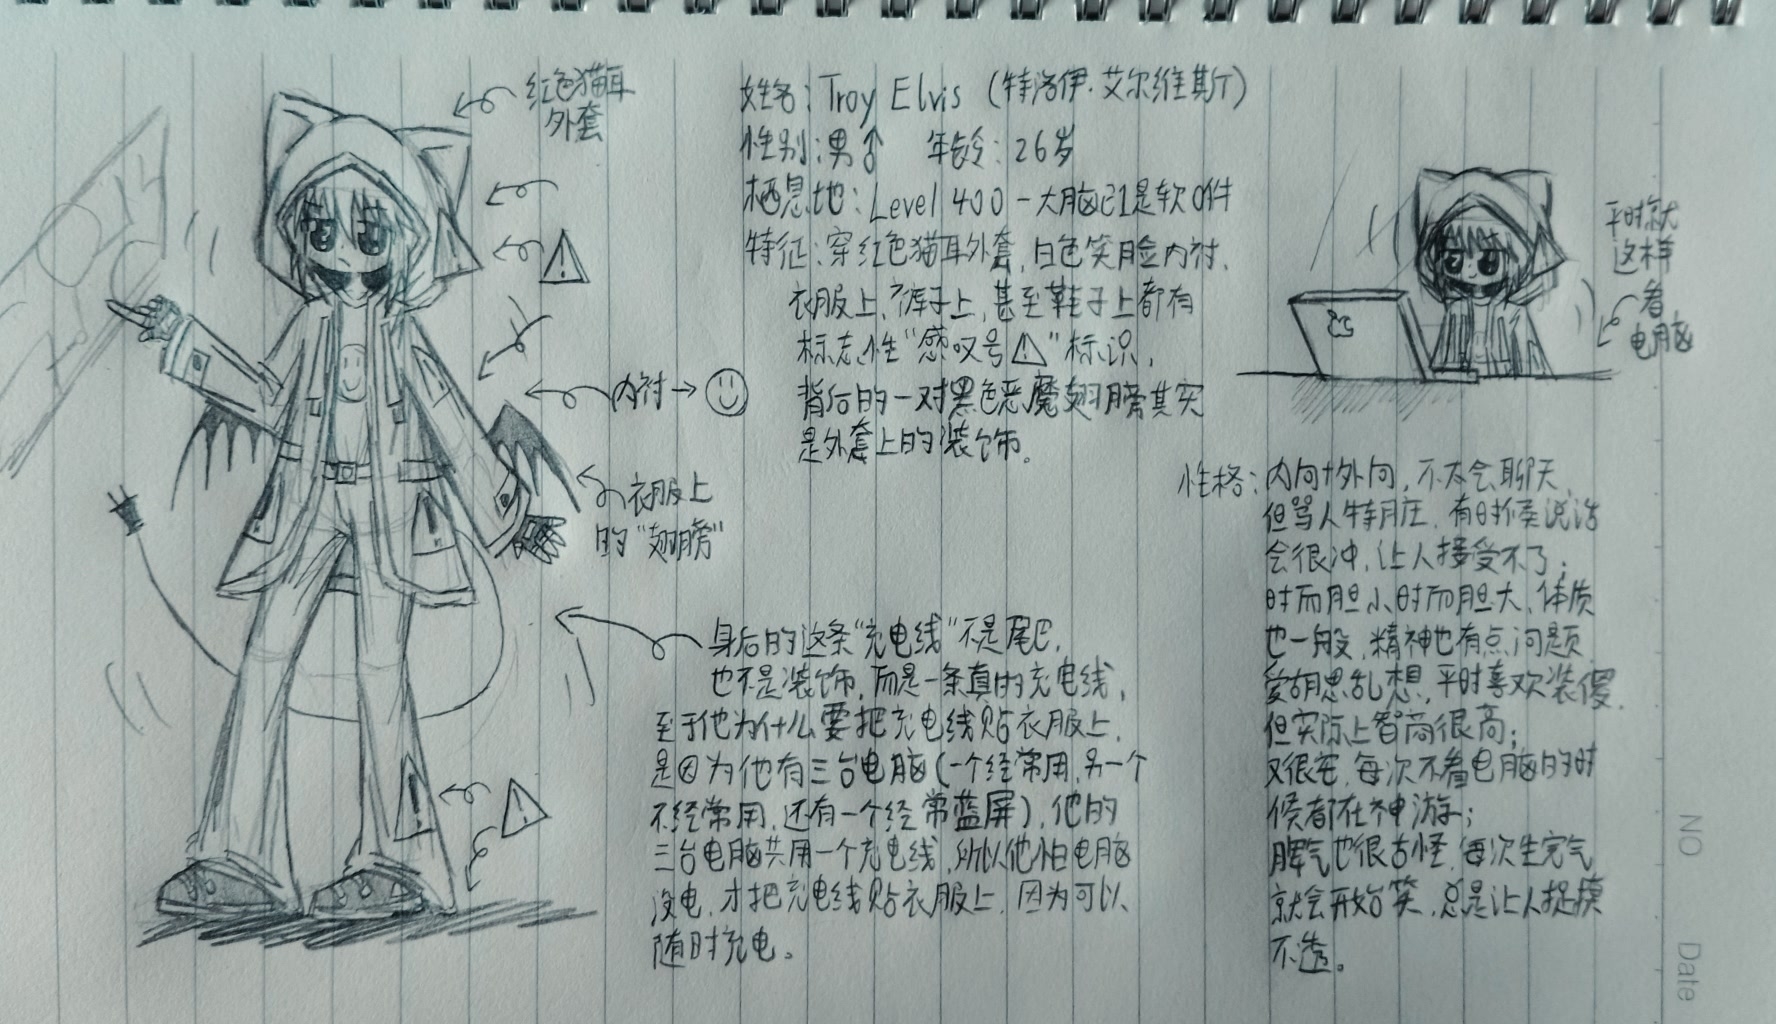 红色猫耳
外套
内衬→
衣服上
的“翅膀”
姓名：Troy Elvis（特洛伊·艾尔维斯）
性别：男♂ 年龄：26岁
栖息地：Level 400 - 大脑已1是软0件
特征：穿红色猫耳外套，白色笑脸内衬，
衣服上，裤子上，甚至鞋子上都有
标志性“感叹号⚠”标识，
背后的一对黑色恶魔翅膀其实
是外套上的装饰。
身后的这条“充电线”不是尾巴，
也不是装饰，而是一条真的充电线，
至于他为什么要把充电线贴衣服上，
是因为他有三台电脑（一个经常用，另一个
不经常用，还有一个经常蓝屏），他的
三台电脑共用一个充电线，所以他怕电脑
没电，才把充电线贴衣服上，因为可以
随时充电。
平时就
这样
看
电脑
性格：内向+外向，不太会聊天，
但骂人特脏，有时候说话
会很冲，让人接受不了；
时而胆小时而胆大，体质
也一般，精神也有点问题，
爱胡思乱想，平时喜欢装傻，
但实际上智商很高；
又很宅，每次不看电脑的时
候都在神游；
脾气也很古怪，每次生完气
就会开始笑，总是让人捉摸
不透。
NO
Date